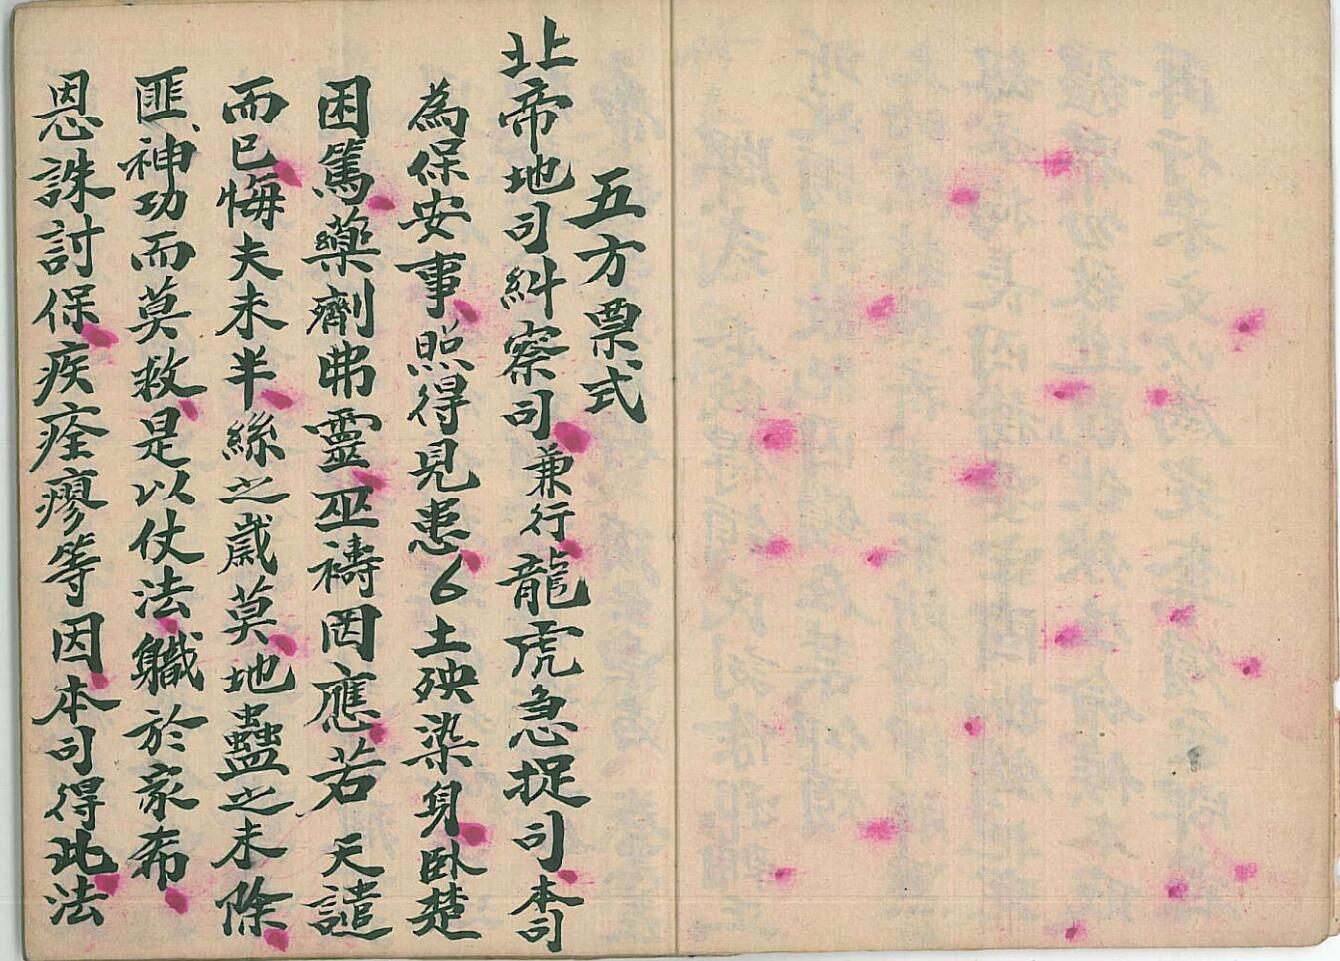 五方票式
北帝地司糾察司兼行龍虎急捉司本司
為保安事照得見患6土殃染身臥楚
困篤藥劑弗靈巫禱罔應若天譴
而已悔夫未半絲之歲莫地蠱之未除
匪神功而莫救是以仗法職於家希
恩誅討保疾痊瘳等因本司得此法